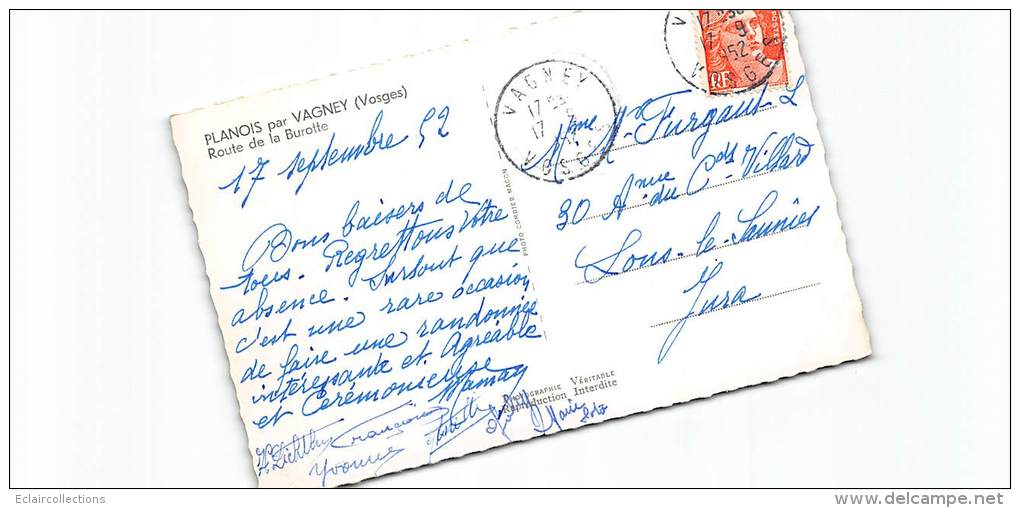 PLANOIS par VAGNEY (Vosges)
Route de la Burotte
17 septembre 52
Bons baisers de
tous. Regrettons Votre
absence. Surtout que
c'est une rare occasion
de faire une randonnée
intéressante et Agréable
et Cérémonseuse
Maman
Yvonne
Marie
PHOTO COMBIER MACON
PHOTOGRAPHIE VÉRITABLE
Reproduction Interdite
VAGNEY
17
VOSGES
RF
Mme
30 Anue du Cdt Villard
Lons-le-Saunier
Jura
Eclaircollections
delcampe.net